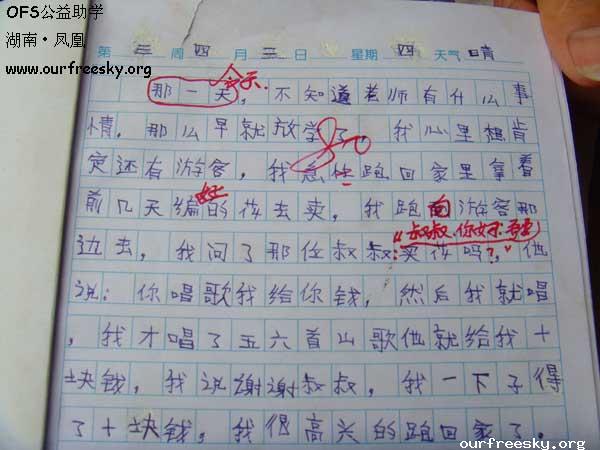 OFS公益助学
湖南·凤凰
www.ourfreesky.org
第三周四月三日 星期四天气晴
今天.
那一天，不知道老师有什么事
情，那么早就放学了 我心里想肯
定还有游客，我急忙跑回家里拿着
前几天编好的花去卖，我跑向游客那
边去，我问了那位叔叔:买花吗?，他
"叔叔，你好!
说：你唱歌我给你钱，然后我就唱
，我才唱了五六首山歌他就给我十
块钱，我说谢谢叔叔，我一下子得
了十块钱，我很高兴的跑回家了。
www.ourfreesky.org